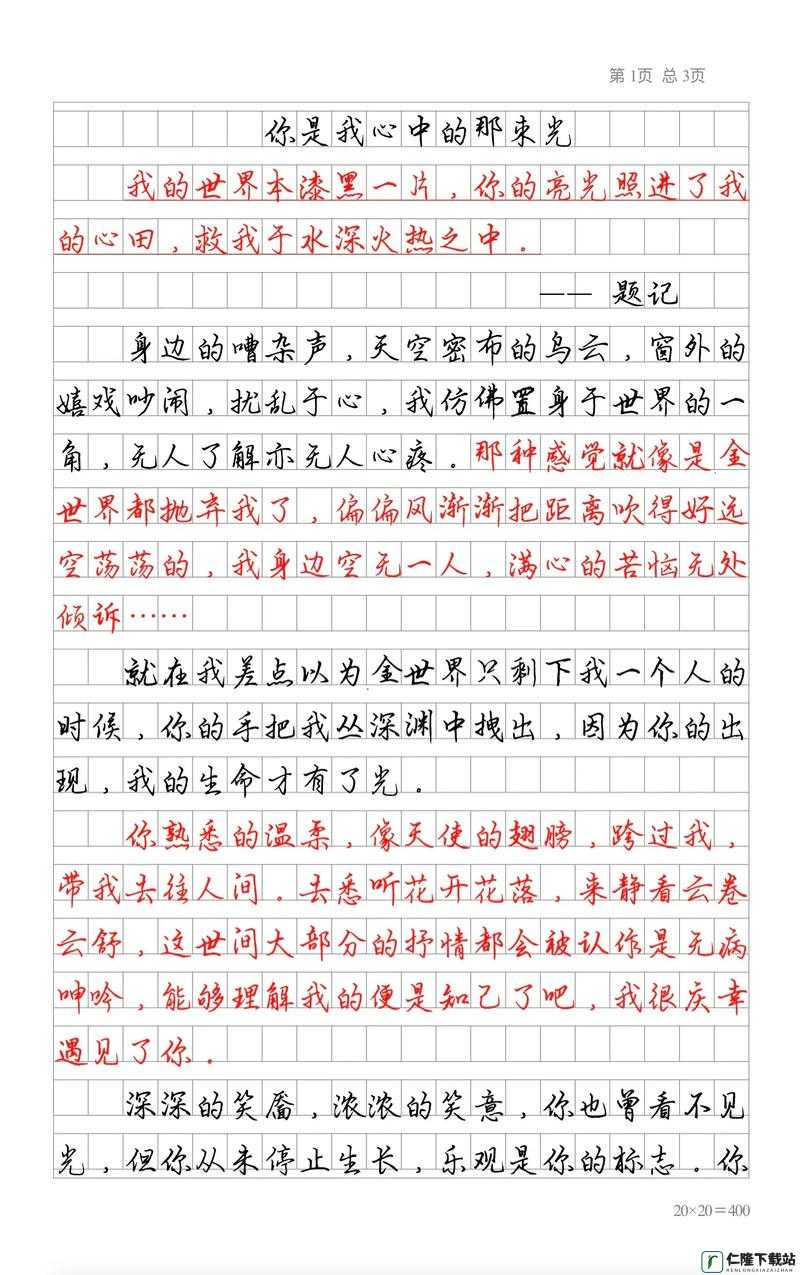 第1页 总3页
你是我心中的那束光
我的世界本漆黑一片，你的亮光照进了我
的心田，救我于水深火热之中。
—— 题记
身边的嘈杂声，天空密布的乌云，窗外的
嬉戏吵闹，扰乱于心，我仿佛置身于世界的一
角，无人了解亦无人心疼。那种感觉就像是全
世界都抛弃我了，偏偏风渐渐把距离吹得好远
空荡荡的，我身边空无一人，满心的苦恼无处
倾诉……
就在我差点以为全世界只剩下我一个人的
时候，你的手把我从深渊中拽出，因为你的出
现，我的生命才有了光。
你熟悉的温柔，像天使的翅膀，跨过我，
带我去往人间。去悉听花开花落，来静看云卷
云舒，这世间大部分的抒情都会被认作是无病
呻吟，能够理解我的便是知己了吧，我很庆幸
遇见了你。
深深的笑靥，浓浓的笑意，你也曾看不见
光，但你从未停止生长，乐观是你的标志。你
20×20=400
仁隆下载站
RENLONGXIAZAIZHAN